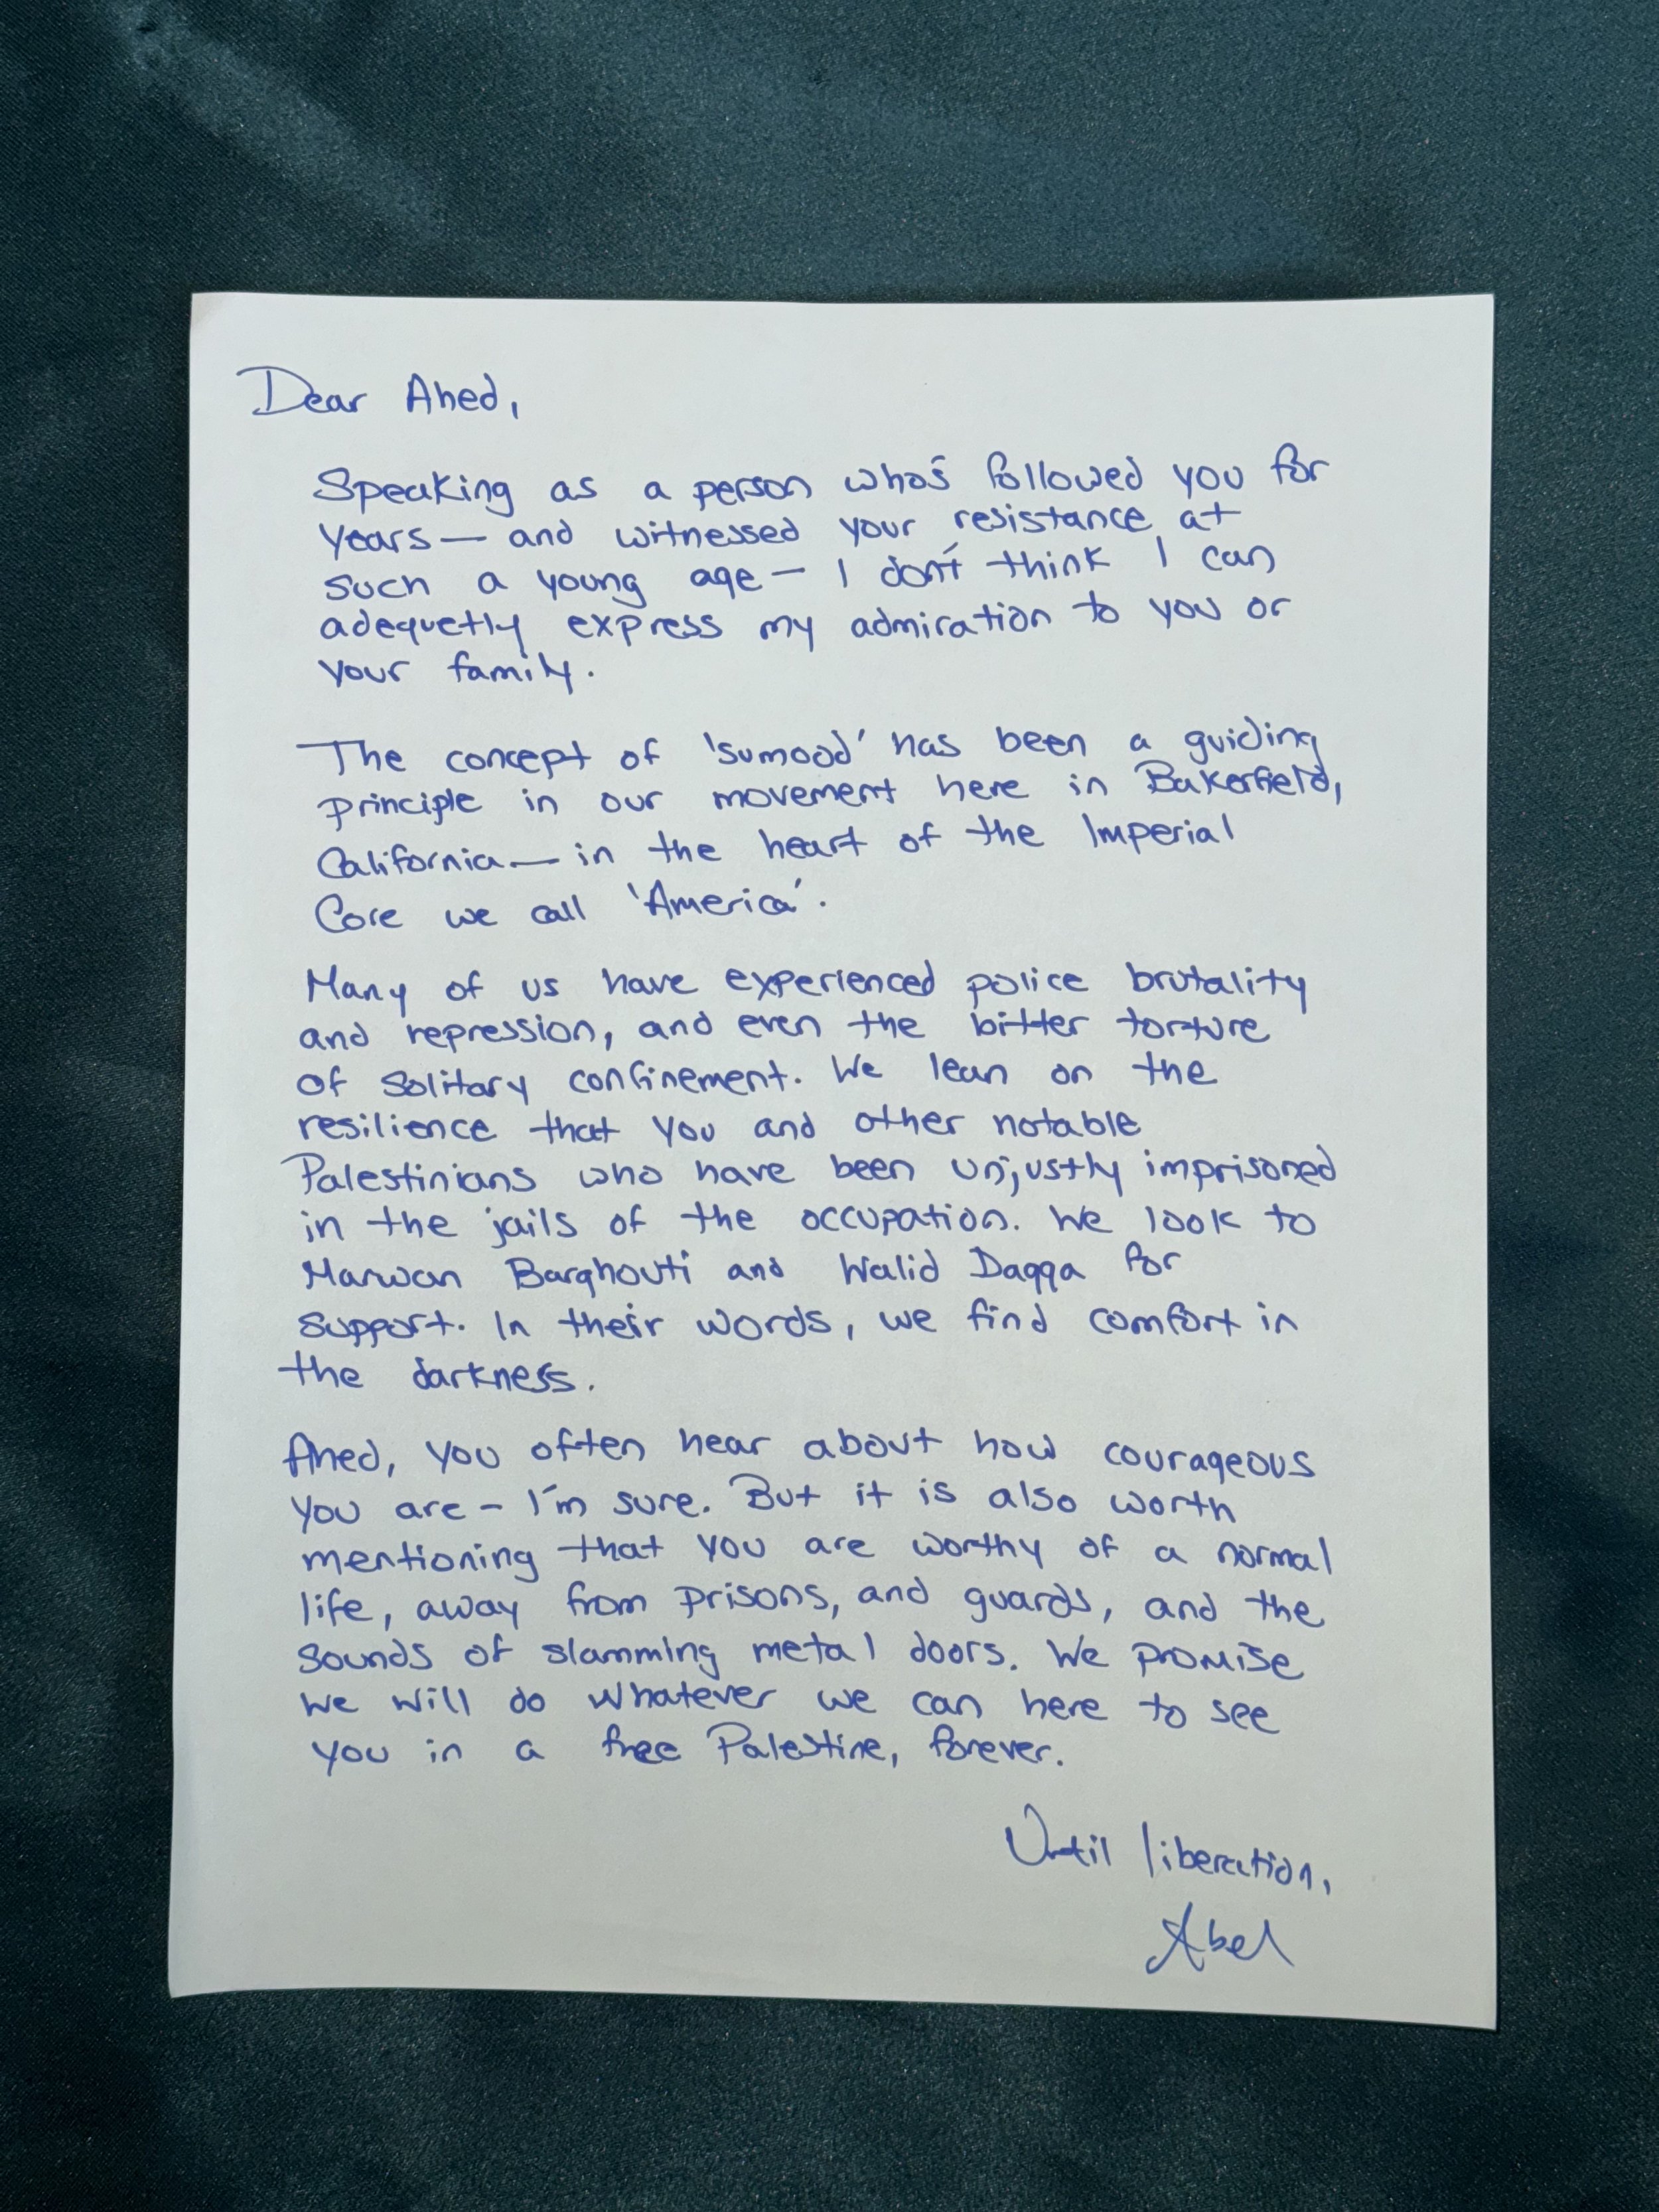 Dear Ahed,
Speaking as a person who's followed you for
years — and witnessed your resistance at
such a young age — I don't think I can
adequetly express my admiration to you or
your family.
The concept of 'sumood' has been a guiding
principle in our movement here in Bakerfield,
California — in the heart of the Imperial
Core we call 'America'.
Many of us have experienced police brutality
and repression, and even the bitter torture
of solitary confinement. We lean on the
resilience that you and other notable
Palestinians who have been unjustly imprisoned
in the jails of the occupation. We look to
Marwan Barghouti and Walid Daqqa for
support. In their words, we find comfort in
the darkness.
Ahed, you often hear about how courageous
you are - I'm sure. But it is also worth
mentioning that you are worthy of a normal
life, away from prisons, and guards, and the
sounds of slamming metal doors. We promise
we will do whatever we can here to see
you in a free Palestine, forever.
Until liberation,
Abel